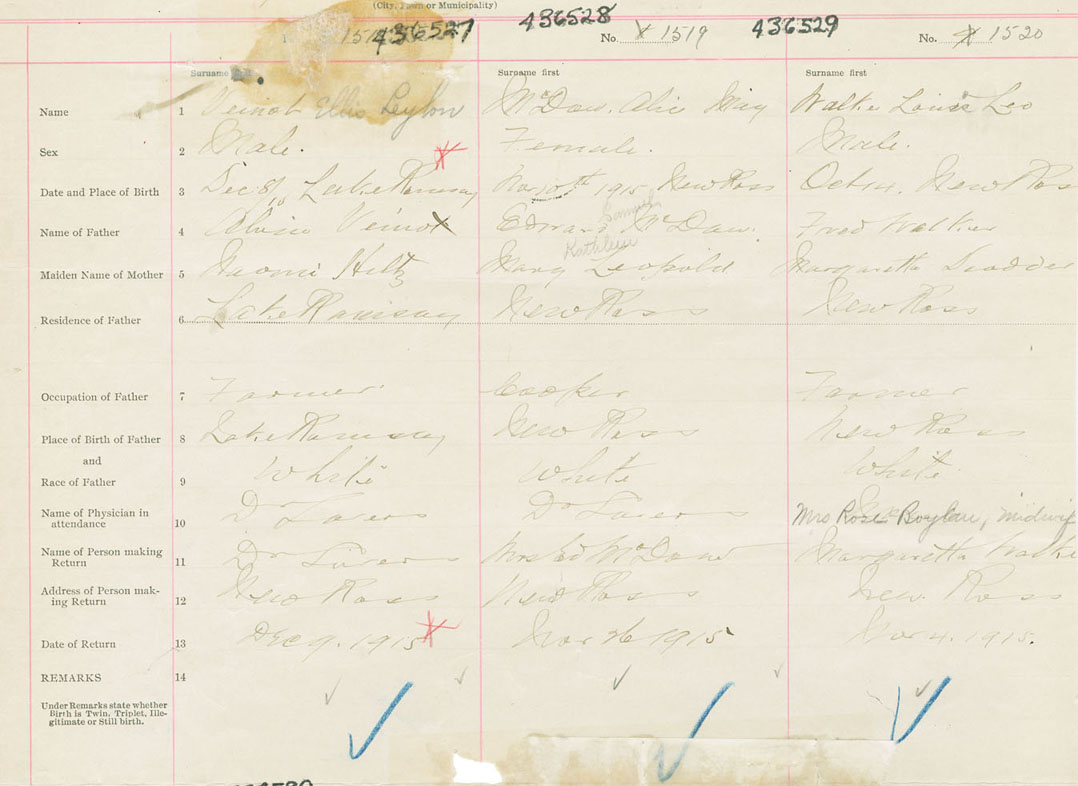 (City, Town or Municipality)
436527 436528 436529
151 No. 1519 No. 1520
Surname Surname first Surname first
Name 1 Veinot Ellis Leylon McDow, Alice May Walker Louis Leo
Sex 2 Male. Female. Male.
Date and Place of Birth 3 Dec 8/15 Lake Ramsay Nov 10th 1915 New Ross Oct New Ross
Samuel
Name of Father 4 Alvin Veinot Edward McDow. Fred Walker
Kathleen
Maiden Name of Mother 5 Naomi Hiltz Mary Leopold Margaretta
Residence of Father 6 Lake Ramsay New Ross New Ross
Occupation of Father 7 Farmer Cooper Farmer
Place of Birth of Father 8 Lake Ramsay New Ross New Ross
and
Race of Father 9 White White White
Name of Physician in
attendance 10 Dr Dr Mrs Rose Boylan, midwif
Name of Person making
Return 11 Dr Mrs Ed McDow Margaretta Walke
Address of Person mak-
ing Return 12 New Ross New Ross New Ross
Date of Return 13 Dec 9. 1915 Nov 26 1915 Nov 4. 1915.
REMARKS 14
Under Remarks state whether
Birth is Twin, Triplet, Ille-
gitimate or Still birth.